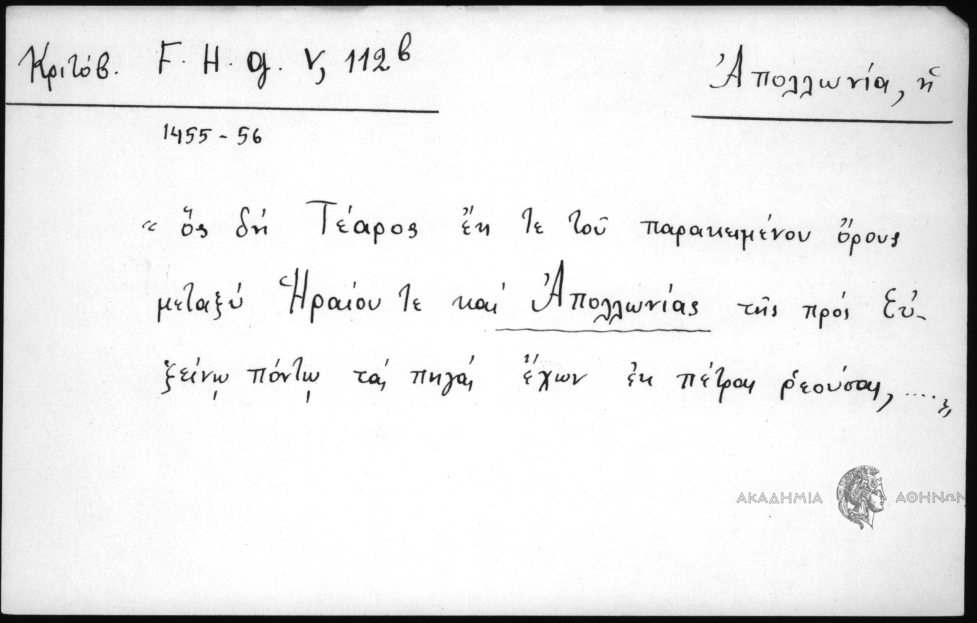 Κριτόβ. F. H. g. V, 112β
Ἀπολλωνία, ἡ
1455-56
« ὅς δή Τέαρος ἔκ τε τοῦ παρακειμένου ὄρους
μεταξύ Ἡραίου τε καί Ἀπολλωνίας τῆς πρός Εὐ-
ξείνῳ πόντῳ τάς πηγάς ἔχων ἐκ πέτρας ῥεούσας, ....»
ΑΚΑΔΗΜΙΑ ΑΘΗΝΩΝ